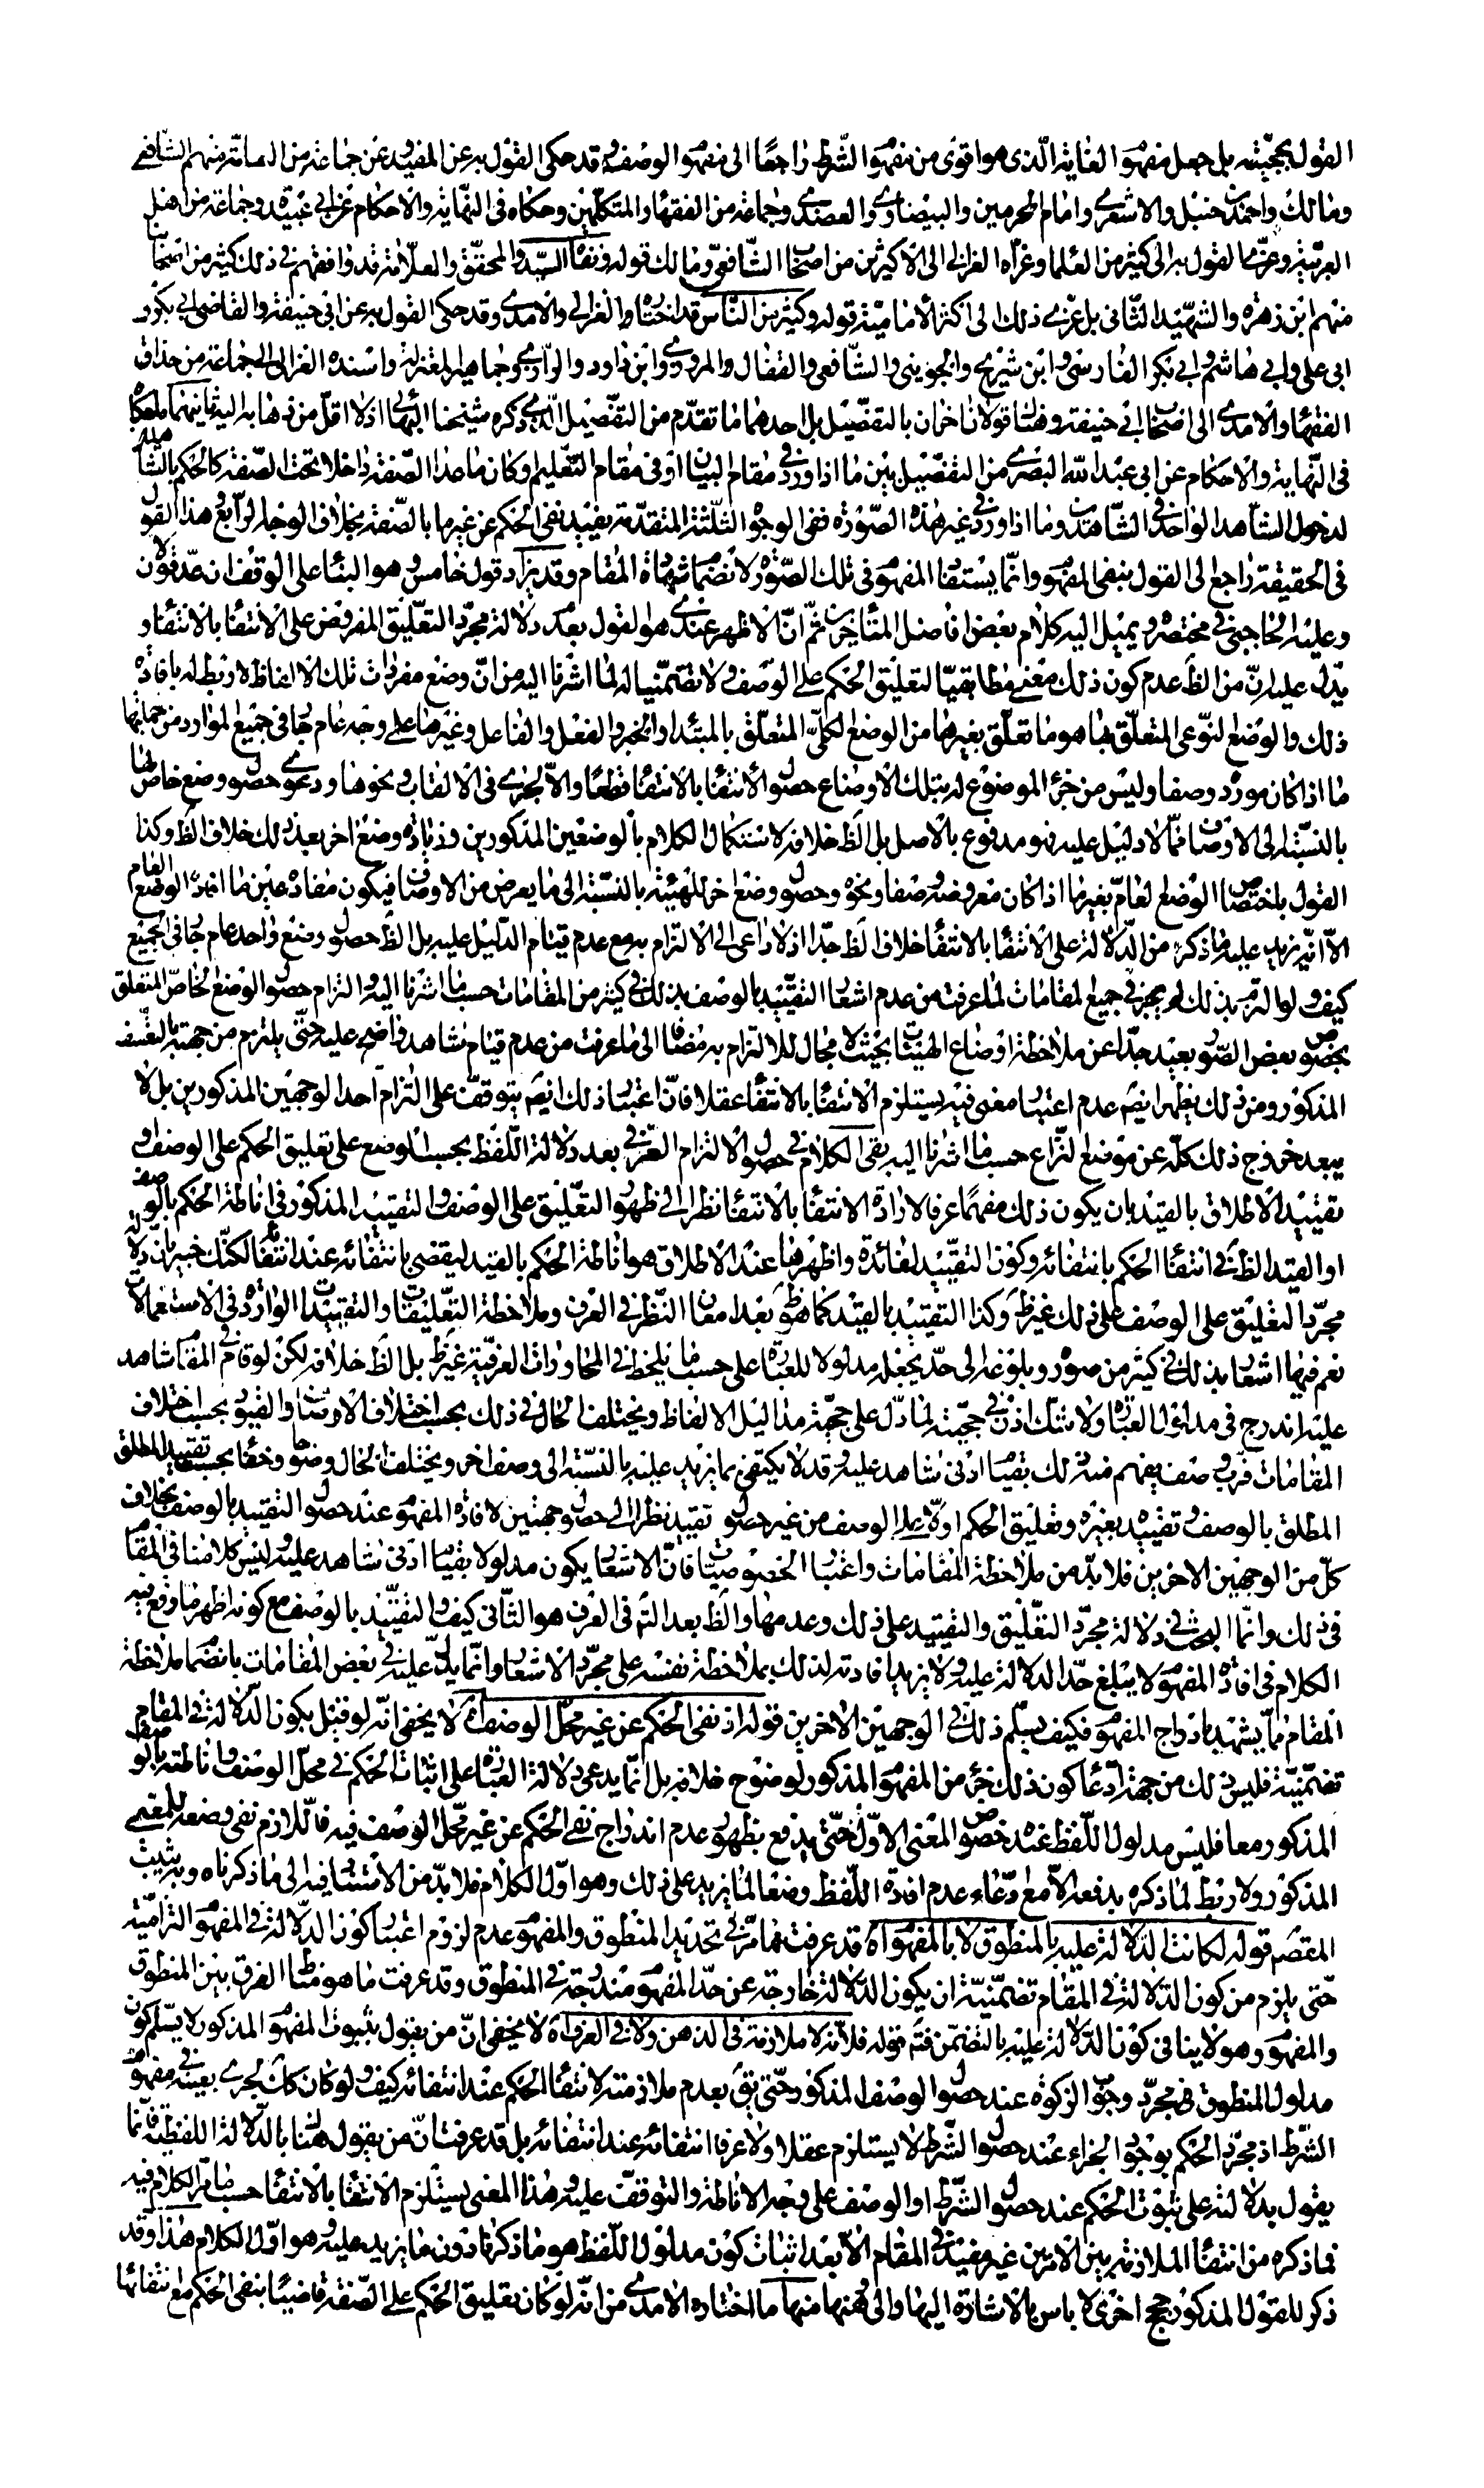 القول بحجيته بل جعل مفهوم الغاية الذى هو اقوى من مفهوم الشرط راجعا الى مفهوم الوصف وقد حكى القول به عن المفيد وعن جماعة من العامة منهم الشافعي
ومالك واحمد بن حنبل والاشعري وامام الحرمين والبيضاوي والعضدي وجماعة من الفقهاء والمتكلمين وحكاه في النهاية والاحكام عن ابي عبيدة وجماعة من اهل
العربية وعزي القول به الى كثير من العلماء وعزاه الغزالي الى الاكثرين من اصحاب الشافعي ومالك قوله ونفاه السيد والمحقق والعلامة قد وافقهم في ذلك كثير من اصحابنا
منهم ابن زهرة والشهيد الثاني بل عزي ذلك الى اكثر الامامية قوله وكثير من الناس قد اختاره الغزالي والامدي وقد حكى القول به عن ابي حنيفة والقاضي ابي بكر و
ابي علي وابي هاشم وابي بكر الفارسي وابن شريح والجويني والشافعي والقفال والمروزي وابن داود والرازي وجماهير المعتزلة واسنده الغزالي الى جماعة من حذاق
الفقهاء والامدي الى اصحاب ابي حنيفة وهناك قولان اخران بالتفصيل احدهما ما تقدم من التفصيل الذي ذكره شيخنا البهائي اذ لا اقل من ذهابه اليه ثانيهما ما حكاه
في النهاية والاحكام عن ابي عبد الله البصري من التفصيل بين ما اذا ورد في مقام البيان او في مقام التعليم وكان ما عدا الصفة داخلا تحت الصفة كالحكم بالشاهدين
لدخول الشاهد الواحد في الشاهدين وما اذا ورد في غير هذه الصورة ففي الوجوه الثلثة المتقدمة يفيد نفي الحكم عن غير ما بالصفة بخلاف الوجه الرابع وهذا القول
في الحقيقة راجع الى القول بنفي المفهوم وانما يستفاد المفهوم في تلك الصور لانضمام شهادة المقام وقد يزاد قول خامس وهو البناء على الوقف ان عد قولا
وعليه الحاجبي في مختصره ويميل اليه كلام بعض افاضل المتاخرين ثم ان الاظهر عندي هو القول بعدم دلالة مجرد التعليق المفروض على الانتفاء بالانتفاء و
يدل عليه ان من الظ عدم كون ذلك معنى مطابقيا لتعليق الحكم على الوصف ولا تضمنيا له لما اشرنا اليه من ان وضع مفردات تلك الالفاظ لا ربط له بافادة
ذلك والوضع النوعي المتعلق بها هو ما تعلق بغيرها من الوضع الكلي المتعلق بالمبتداء والخبر والفعل والفاعل وغيرها على وجه عام جار في جميع الموارد من جملتها
ما اذا كان مورده وصفا وليس من جزء الموضوع له بتلك الاوضاع حصول الانتفاء بالانتفاء قطعا والا لجرى في الالقاب ونحوها ودعوى حصول وضع خاص لها
بالنسبة الى الاوصاف مما لا دليل عليه فهو مدفوع بالاصل بل الظ خلافه لاستكمال الكلام بالوضعين المذكورين وزيادة وضع اخر بعد ذلك خلاف الظ وكذا
القول باختصاص الوضع العام بغير ما اذا كان معروضه صفة او نحوه وحصول وضع اخر للهيئة بالنسبة الى ما يعرض من الاوصاف فيكون مفاده عين ما افاده الوضع العام
الا انه يزيد عليه ما ذكر من الدلالة على الانتفاء بالانتفاء خلاف الظ جدا اذ لا داعى الى الالتزام به مع عدم قيام الدليل عليه بل الظ حصول وضع واحد عام جار في الجميع
كيف ولو التزم بذلك لم يجر في جميع المقامات لما عرفت من عدم اشعار التقييد بالوصف بذلك في كثير من المقامات حسبما اشرنا اليه والتزام حصول الوضع الخاص المتعلق
بخصوص بعض الصور بعيد جدا عن ملاحظة اوضاع الهيئات بحيث لا مجال للالتزام به مضافا الى ما عرفت من عدم قيام شاهد واضح عليه حتى يلتزم من جهته بالتعسف
المذكور ومن ذلك يظهر ايضا عدم اعتبار معنى فيه يستلزم الانتفاء بالانتفاء عقلا فان اعتبار ذلك ايضا يتوقف على التزام احد الوجهين المذكورين بل لا
يبعد خروج ذلك كله عن موضع النزاع حسبما اشرنا اليه بقى الكلام في حصول الالتزام العرفي بعد دلالة اللفظ بحسب الوضع على تعليق الحكم على الوصف و
تقييد الاطلاق بالقيد بان يكون ذلك مفهما عرفا لارادة الانتفاء بالانتفاء نظرا الى ظهور التعليق على الوصف والتقييد المذكور في اناطة الحكم بالوصف
او القيد الظ في انتفاء الحكم بانتفائه وكون التقييد لفائدة واظهرها عند الاطلاق هو اناطة الحكم بالقيد ليقضي بانتفائه عند انتفائه لكنك خبير بان دلالة
مجرد التعليق على الوصف على ذلك غير ظ وكذا التقييد بالقيد كما هو ظ بعد امعان النظر في العرف وملاحظة التعليقات والتقييدات الواردة في الاستعمالات
نعم فيهما اشعار بذلك في كثير من صوره وبلوغه الى حد يجعله مدلولا للعبارة على حسب ما يلحظ في المحاورات العرفية غير ظ بل الظ خلافه لكن لو قام في المقام شاهد
عليه اندرج في مدلول العبارة ولا شك اذن في حجيته لما دل على حجية مداليل الالفاظ ويختلف الحال في ذلك بحسب اختلاف الاوصاف والقيود بحسب اختلاف
المقامات فرب وصف يفهم منه ذلك بقيام ادنى شاهد عليه وقد لا يكتفى بما يزيد عليه بالنسبة الى وصف اخر ويختلف الحال وضوحا وخفاء بحسب تقييد المطلق
المطلق بالوصف وتقييده بغيره وتعليق الحكم اولا على الوصف من غير حصول تقييد نظرا الى حصول جهتين لافادة المفهوم عند حصول التقييد بالوصف بخلاف
كل من الوجهين الاخرين فلا بد من ملاحظة المقامات واعتبار الخصوصيات فان الاشعار يكون مدلولا بقيام ادنى شاهد عليه وليس كلامنا في المقام
في ذلك وانما البحث في دلالة مجرد التعليق والتقييد على ذلك وعدمها والظ بعد التم في العرف هو الثاني كيف والتقييد بالوصف مع كونه اظهر ما وقع فيه
الكلام في افادة المفهوم لا يبلغ حد الدلالة عليه ولا يزيد افادته لذلك بملاحظة نفسه على مجرد الاشعار وانما يدل عليه في بعض المقامات بانضمام ملاحظة
المقام مما يشهد بازدواج المفهوم فكيف يسلم ذلك في الوجهين الاخرين قوله اذ نفى الحكم عن غير محل الوصف اه لا يخفى انه لو قيل بكون الدلالة في المقام
تضمنية فليس ذلك من جهة ادعاء كون ذلك جزء من المفهوم المذكور لوضوح خلافه بل انما يدعى دلالة العبارة على اثبات الحكم في محل الوصف واناطته بالوصف
المذكور معا فليس مدلول اللفظ عنده خصوص المعنى الاول حتى يدفع بظهور عدم اندراج نفي الحكم عن غير محل الوصف فيه فاللازم نفي وضعه للمعنى
المذكور ولا ربط لما ذكره بدفعه الا مع ادعاء عدم افادة اللفظ وضعا لما يزيد على ذلك وهو اول الكلام فلا بد من الاستناد فيه الى ما ذكرناه وبه يثبت
المقصم قوله لكانت الدلالة عليه بالمنطوق لا بالمفهوم اه قد عرفت مما مر في تحديد المنطوق والمفهوم عدم لزوم اعتبار كون الدلالة في المفهوم التزامية
حتى يلزم من كون الدلالة في المقام تضمنية ان يكون الدلالة خارجة عن حد المفهوم مندرجة في المنطوق وقد عرفت ما هو مناط الفرق بين المنطوق
والمفهوم وهو لا ينافي كون الدلالة عليه بالتضمن فتم قوله فلانه لا ملازمة في الذهن ولا في العرف اه لا يخفى ان من يقول بثبوت المفهوم المذكور لا يسلم كون
مدلول المنطوق هو مجرد وجوب الزكوة عند حصول الوصف المذكور حتى يق بعدم ملازمته لانتفاء الحكم عند انتفائه كيف ولو كان كك لجرى بعينه في مفهوم
الشرط اذ مجرد الحكم بوجوب الجزاء عند حصول الشرط لا يستلزم عقلا ولا عرفا انتفائه عند انتفائه بل قد عرفت ان من يقول هنا بالدلالة اللفظية فانما
يقول بدلالته على ثبوت الحكم عند حصول الشرط او الوصف على وجه الاناطة والتوقف عليه وهذا المعنى يستلزم الانتفاء بالانتفاء حسبما مر الكلام فيه
فما ذكره من انتفاء الملازمة بين الامرين غير مفيد في المقام الا بعد اثبات كون مدلول اللفظ هو ما ذكره دون ما يزيد عليه وهو اول الكلام هذا وقد
ذكر للقول المذكور حجج اخرى لا باس بالاشارة اليها والى وهنها منها ما اختاره الامدي من انه لو كان تعليق الحكم على الصفة قاضيا بنفى الحكم مع انتفائها